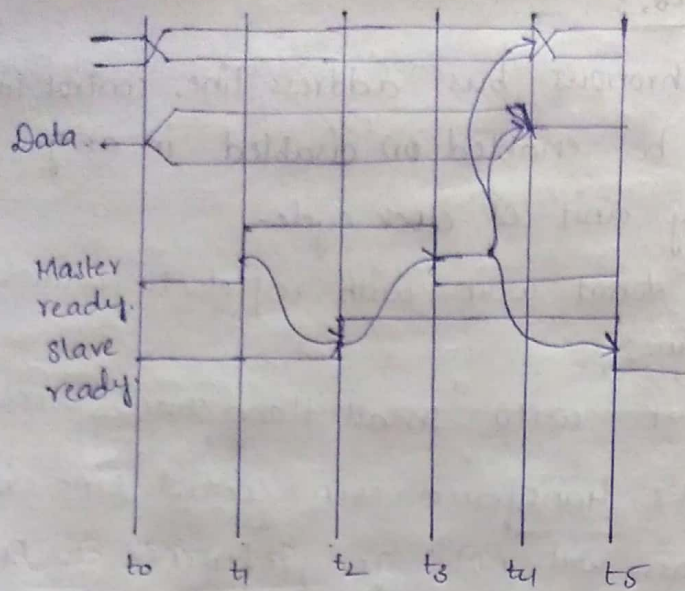 Data
Master
ready.
Slave
ready
t0 t1 t2 t3 t4 t5